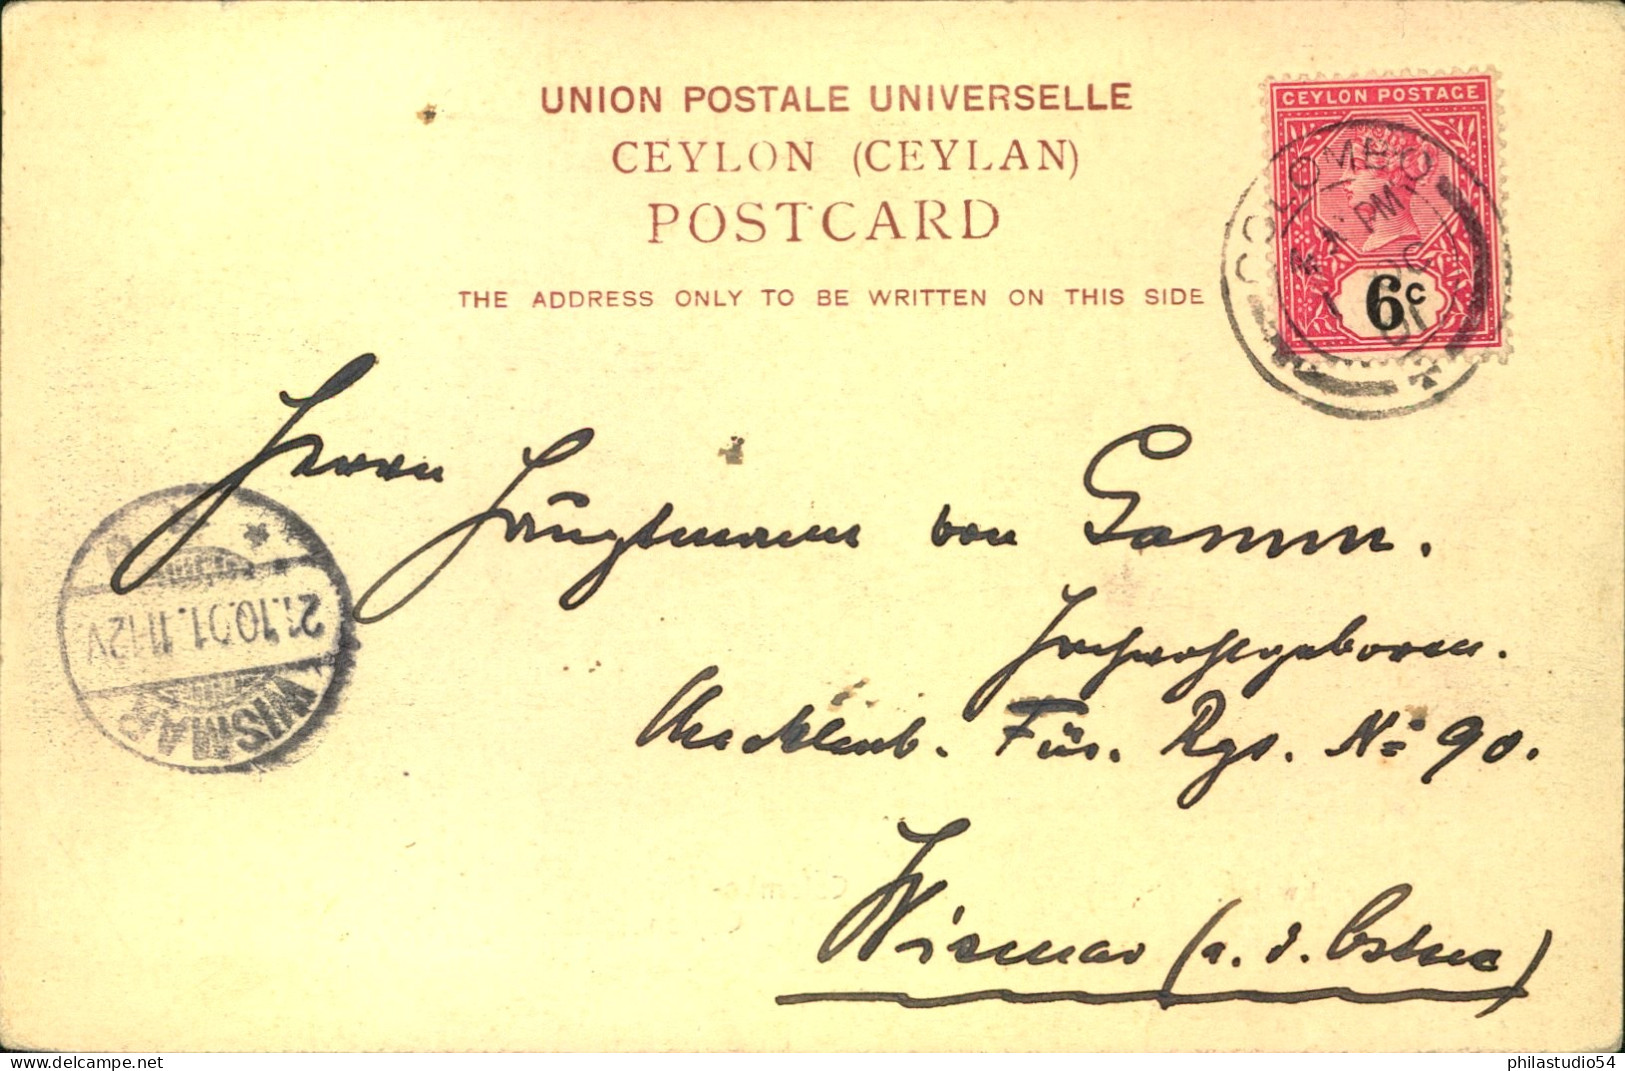 UNION POSTALE UNIVERSELLE
CEYLON (CEYLAN)
POSTCARD
THE ADDRESS ONLY TO BE WRITTEN ON THIS SIDE
CEYLON POSTAGE
6c
COLOMBO
PM
Herrn Hauptmann von Gamm.
Hochwohlgeboren.
Mecklenb. Füs. Rgs. No 90.
Wismar (a. d. Ostsee)
21.10.01.11-12V
WISMAR
philastudio54